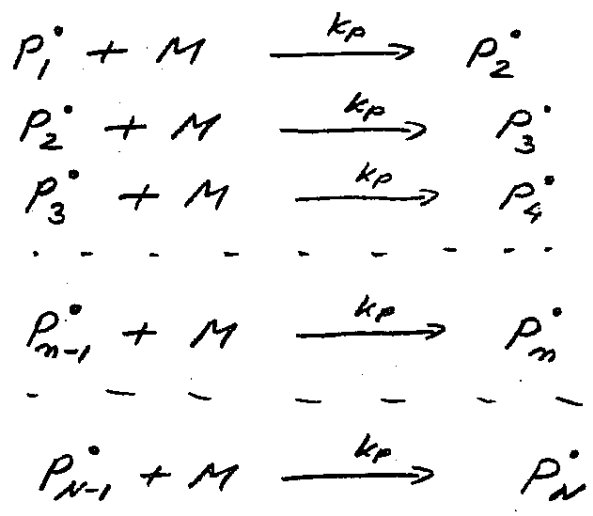 P₁• + M —kp→ P₂•
P₂• + M —kp→ P₃•
P₃• + M —kp→ P₄•
. - - - - - - - - -
Pₙ₋₁• + M —kp→ Pₙ•
- - - - - - -
P_N-1• + M —kp→ P_N•